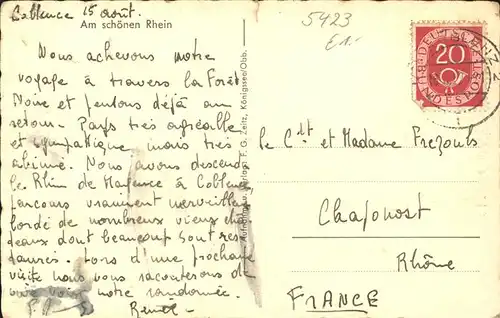 Coblence 15 août.
Am schönen Rhein
Nous achevons notre
voyage à travers la Forêt
Noire et pensons déjà au
retour. Pays très agréable
et sympatique mais très
abimé. Nous avons descendu
le Rhin de Mayence à Coblence,
parcours vraiment merveilleux
bordé de nombreux vieux châ
teaux dont beaucoup sont res
taurés. Lors d'une prochaine
visite nous vous raconterons de
vive voix notre randonnée.
Verlag F. G. Zeitz, Königssee/Obb.
5423
E1.-
DEUTSCHE BUNDESPOST
20
le Cdt et Madame Frezouls
Chaponost
Rhône
FRANCE